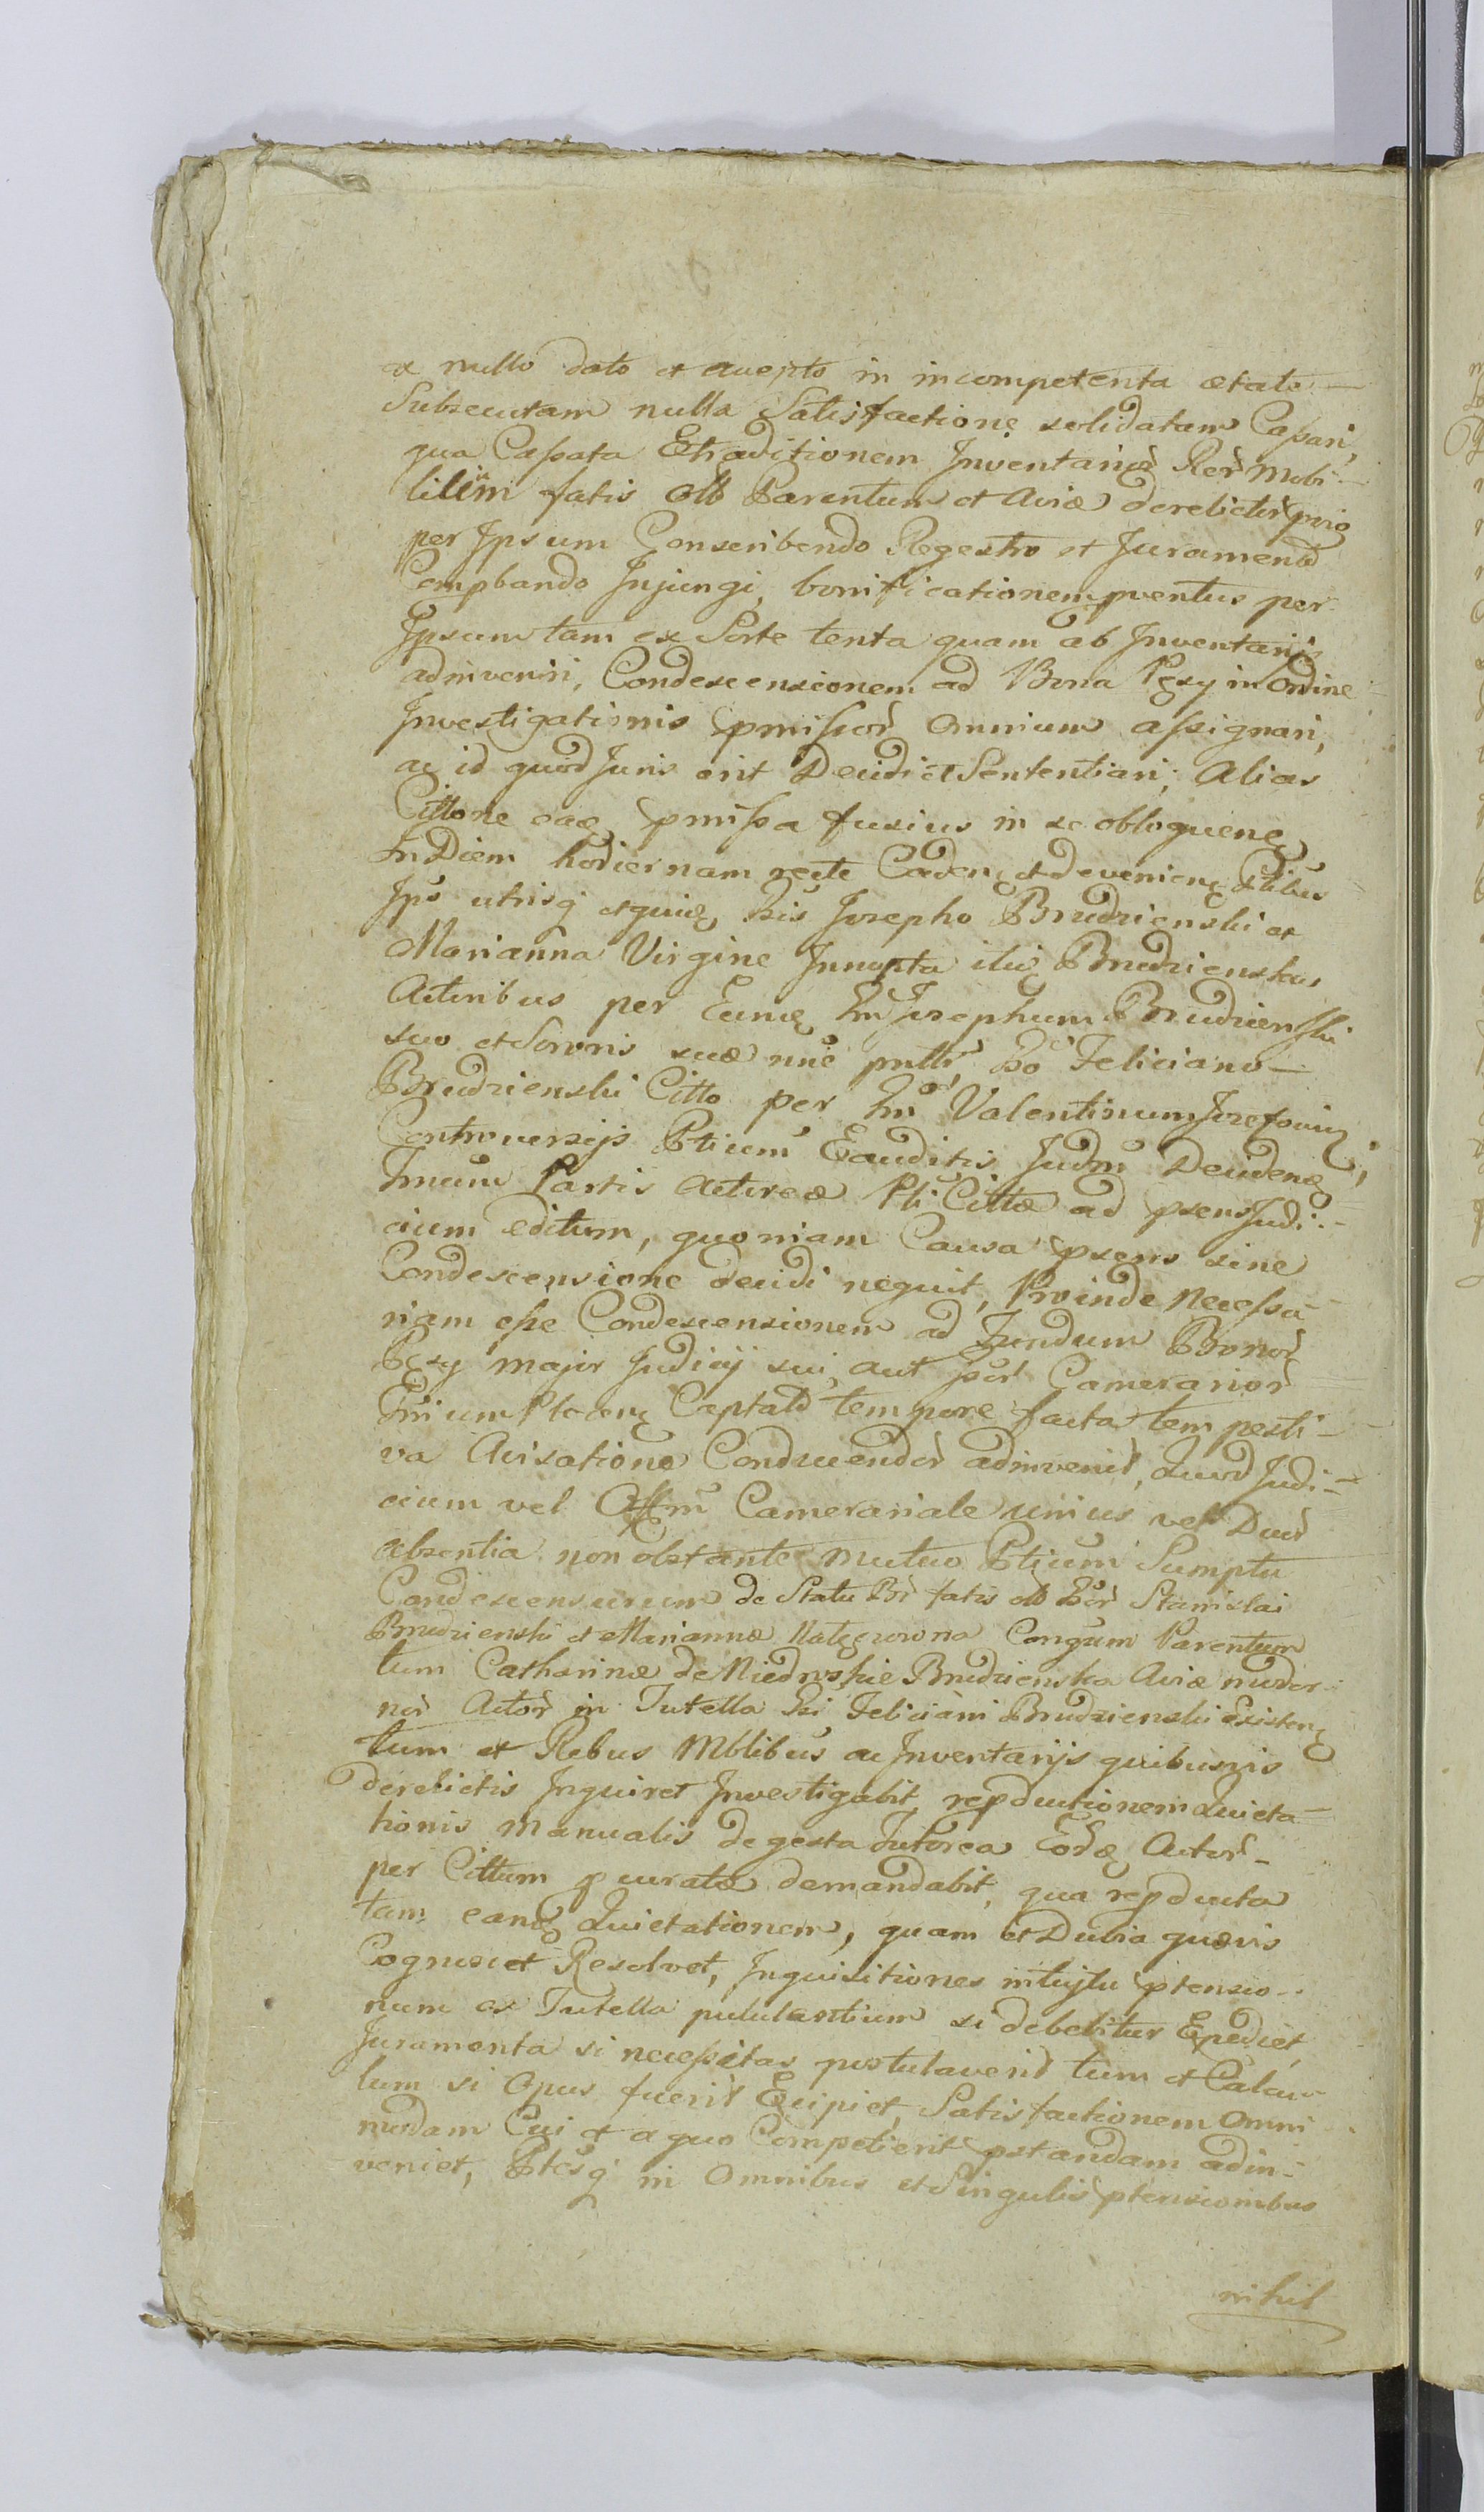 ex nullo dato et accepto in incompetenta ætate
Subsecutam nulla Satisfactione solidatam Cassari,
qua Cassata Extraditionem Inventariõr Rer̃ Mobi-
lium fatis olĩ Parentum et Aviæ derelictor̃
per Ipsum Conscribendo Regestro et Jurament̃
Compbando Injungi, bonificationem pventus per
Ipsum tam ex Sorte tenta quam ab Inventarijs
adinveniri, Condescensionem ad Bona Pęsy in Ordine
Investigationis pmissor̃ Omnium assignari,
ac id quod Juris erit Decidi et Sententiari; Alias
Cittone eaq̃ pmissa fusius in se obloquenę
In Diem hodiernam recte Cadenę et devenienę Ptibus
Ips̃ utrisq̃ Josepho Brudzienski et
Marianna Virgine Innupta Brudzienskie
Actoribus per Eunđ Josephum Brudzienski
suo et Sororis suæ nñe Feliciano
Brudzienski Citto per Valentinum Jozefowicz
Controversijs Ptium Exauditis Judm̃ Decidenę
Partis Actoreæ Cittæ ad psens Judi-
cium editum, quoniam Causa psens sine
Condescensione decidi nequit, Proinde necessa-
riam esse Condescensionem ad Fundum Bonor̃
Pęsy major Judicij sui, aut Camerarior̃
Captato tempore facta tempesti-
va Avisatione Conducendor̃ adinvenit, Quod Judi-
cium vel Offm̃ Camerariale unius vel Duor̃
absentia non obstante mutuo Ptium Sumptu
Condescensurum de Statu Bor̃ fatis olĩ Stanislai
Brudzienski et Mariannæ Congum Parentum
tum Catharinæ de Brudzienska Aviæ moder-
nor̃ Actor̃ in Tutella Feliciani Brudzienski Existenę
tum et Rebus Mblibus ac Inventarijs quibusvis
derelictis Inquiret Investigabit, repductionem Quieta-
tionis manualis de gesta Tutorea Eodę Actor̃
per Cittum pcuratæ demandabit, qua repducta
tam eandę Quietationem, quam et Dubia quævis
Cognoscet Resolvet, Inquisitiones intuitu ptensio-
num ex Tutella pululantium si debebitur Expediet,
Juramenta si necessitas postulaverit tum et Calcu-
lum si Opus fuerit Excipiet, Satisfactionem Omni
modam Cui et a quo Competierit pstandam adin-
veniet, Ptesq̃ in Omnibus et Singulis ptensionibus
nihil